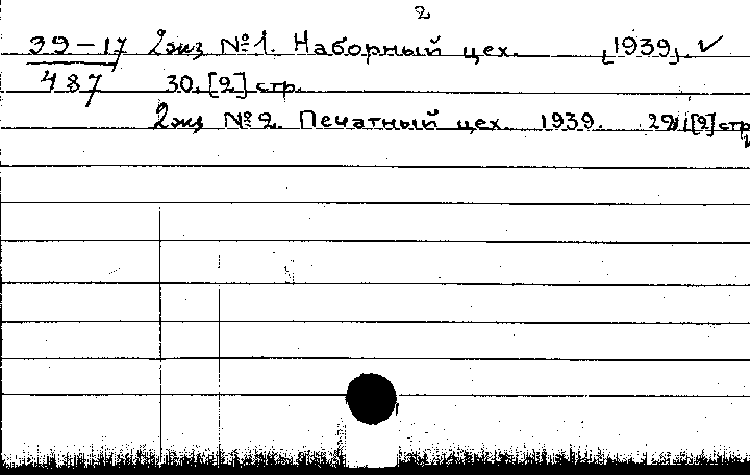 2
39-17 2экз №1. Наборный цех. [1939]. ✓
487 30, [2] стр.
2экз №2. Печатный цех. 1939. [2] стр